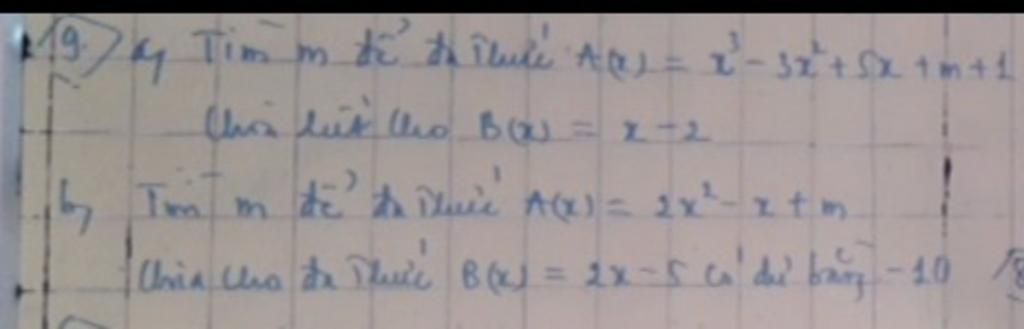 19. a, Tìm m để đa thức A(x) = x³ - 3x² + 5x + m + 1
Chia hết cho B(x) = x - 2
b, Tìm m để đa thức A(x) = 2x² - x + m
Chia cho đa thức B(x) = 2x - 5 có dư bằng -10